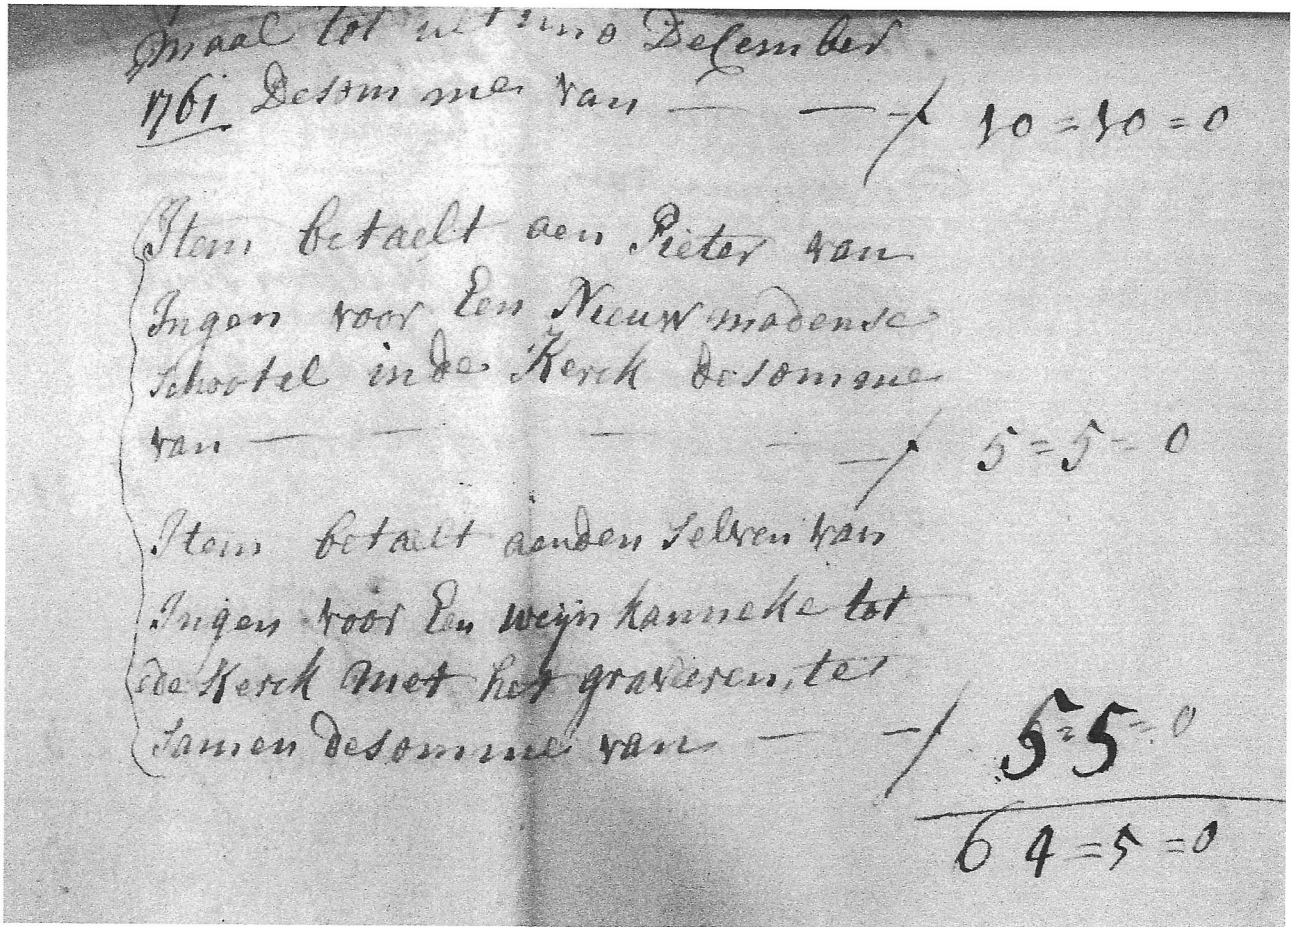 maal tot ultimo December
1761 Desomme van — — — ƒ 10=10=0
Item betaelt aen Pieter van
Ingen voor Een Nieuwmodense
schootel inde Kerck desomme
van — — — — — ƒ 5=5=0
Item betaelt aenden selven van
Ingen voor Een weijn kanneke tot
de Kerck met het graveren, te
samen desomme van — — ƒ 5=5=0
64=5=0